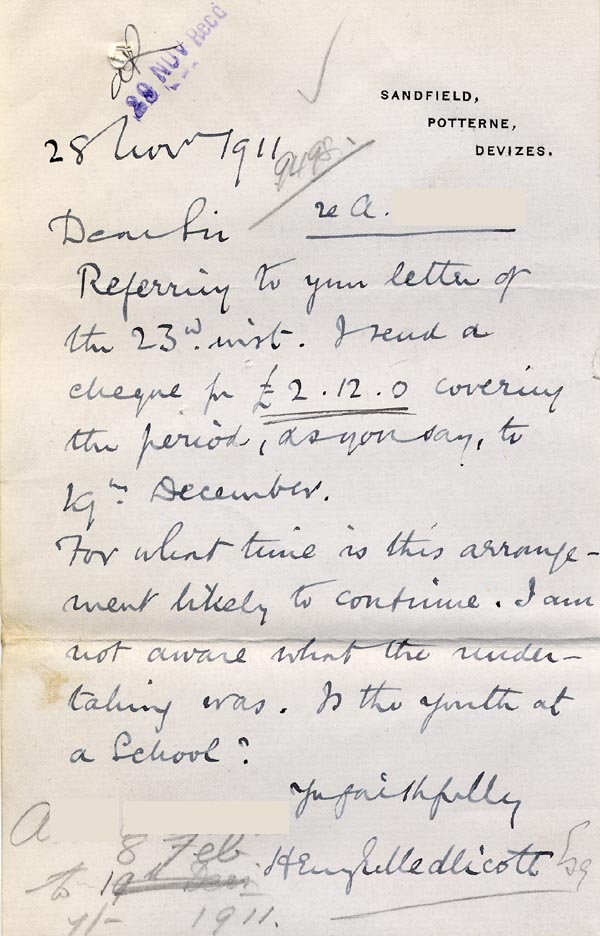 29 NOV Recd
SANDFIELD,
POTTERNE,
DEVIZES.
28 Novr 1911
9498.
Dear Sir
re A.
Referring to your letter of
the 23rd inst. I send a
cheque for £2.12.0 covering
the period, as you say, to
19th December.
For what time is this arrange-
ment likely to continue. I am
not aware what the under-
taking was. Is the youth at
a School?
Yrs faithfully
Henry E Medlicott Esq
A
8 Feb
to 19th
1911.